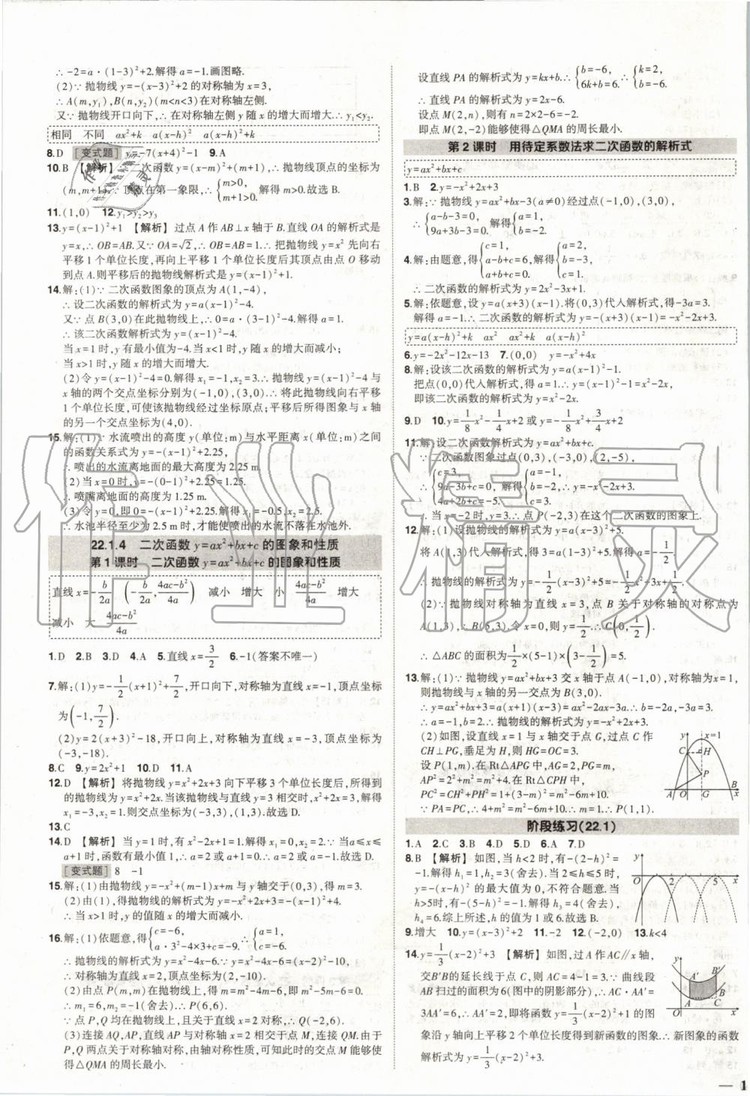 ∴-2=a·(1-3)²+2.解得a=-1.画图略.
(2)∵抛物线y=-(x-3)²+2的对称轴为x=3,
∴A(m,y₁),B(n,y₂)(m<n<3)在对称轴左侧.
又∵抛物线开口向下,∴在对称轴左侧y随x的增大而增大,∴y₁<y₂.
相同 不同 ax²+k a(x-h)² a(x-h)²+k
8.D [变式题] y=-7(x+4)²-1 9.A
10.B 【解析】∵二次函数y=(x-m)²+(m+1),∴抛物线顶点的坐标为
(m,m+1).∵顶点在第一象限,∴{m>0, m+1>0. 解得m>0,故选B.
11.(1,0) 12.y₁>y₂>y₃
13.y=(x-1)²+1 【解析】过点A作AB⊥x轴于B.直线OA的解析式是
y=x,∴OB=AB.又∵OA=√2,∴OB=AB=1.把抛物线y=x²先向右
平移1个单位长度,再向上平移1个单位长度后其顶点由点O移动
到点A.则平移后的抛物线解析式是y=(x-1)²+1.
14.解:(1)∵二次函数图象的顶点为A(1,-4),
∴设二次函数的解析式为y=a(x-1)²-4.
又∵点B(3,0)在此抛物线上,∴0=a·(3-1)²-4.解得a=1.
∴该二次函数的解析式为y=(x-1)²-4.
当x=1时,y有最小值为-4.当x<1时,y随x的增大而减小;
当x>1时,y随x的增大而增大.
(2)令y=(x-1)²-4=0.解得x₁=-1,x₂=3.∴抛物线y=(x-1)²-4与
x轴的两个交点坐标分别为(-1,0),(3,0).∴将此抛物线向右平移
1个单位长度,可使该抛物线经过坐标原点;平移后所得图象与x轴
的另一个交点坐标为(4,0).
15.解:(1)∵水流喷出的高度y(单位:m)与水平距离x(单位:m)之间
的函数关系式为y=-(x-1)²+2.25,
∴喷出的水流离地面的最大高度为2.25 m.
(2)当x=0时,y=-(0-1)²+2.25=1.25,
∴喷嘴离地面的高度为1.25 m.
(3)令y=0,即0=-(x-1)²+2.25.解得x₁=-0.5,x₂=2.5.
∴水池半径至少为2.5 m时,才能使喷出的水流不落在水池外.
22.1.4 二次函数y=ax²+bx+c的图象和性质
第1课时 二次函数y=ax²+bx+c的图象和性质
直线x=-b/2a (-b/2a, (4ac-b²)/4a) 减小 增大 小 (4ac-b²)/4a 增大
减小 大 (4ac-b²)/4a
1.D 2.B 3.D 4.A 5.直线x=3/2 6.-1(答案不唯一)
7.解:(1)y=-1/2(x+1)²+7/2,开口向下,对称轴为直线x=-1,顶点坐标
为(-1,7/2).
(2)y=2(x+3)²-18,开口向上,对称轴为直线x=-3,顶点坐标为
(-3,-18).
8.C 9.y=-2x²+1 10.D 11.A
12.D 【解析】将抛物线y=x²+2x+3向下平移3个单位长度后,所得到
的抛物线为y=x²+2x.当该抛物线与直线y=3相交时,x²+2x=3.解得
x₁=-3,x₂=1.则交点坐标为(-3,3),(1,3).故选D.
13.C
14.D 【解析】当y=1时,有x²-2x+1=1.解得x₁=0,x₂=2.∵当a≤x≤
a+1时,函数有最小值1,∴a=2或a+1=0.∴a=2或a=-1.故选D.
[变式题] 8 -1
15.解:(1)由抛物线y=-x²+(m-1)x+m与y轴交于(0,3),得m=3.
(2)由(1),得抛物线的解析式为y=-x²+2x+3=-(x-1)²+4.
∴当x>1时,y的值随x的增大而减小.
16.解:(1)依题意,得{c=-6, a·3²-4×3+c=-9. ∴{a=1, c=-6.
∴抛物线的解析式为y=x²-4x-6.∵y=x²-4x-6=(x-2)²-10,
∴对称轴为直线x=2,顶点坐标为(2,-10).
(2)由点P(m,m)在抛物线上,得m=m²-4m-6,即m²-5m-6=0.
∴m₁=6,m₂=-1(舍去).∴P(6,6).
∵点P,Q均在抛物线上,且关于直线x=2对称,∴Q(-2,6).
(3)连接AQ,AP,直线AP与对称轴x=2相交于点M.由于
P,Q两点关于对称轴对称,由轴对称性质,可知此时的交点M能够使
得△QMA的周长最小.
设直线PA的解析式为y=kx+b.∴{b=-6, 6k+b=6. ∴{k=2, b=-6.
∴直线PA的解析式为y=2x-6.
设点M(2,n),则有n=2×2-6=-2.
即点M(2,-2)能够使得△QMA的周长最小.
第2课时 用待定系数法求二次函数的解析式
y=ax²+bx+c
1.B 2.y=-x²+2x+3
3.解:∵抛物线y=ax²+bx-3(a≠0)经过点(-1,0),(3,0),
∴{a-b-3=0, 9a+3b-3=0. 解得{a=1, b=-2.
4.解:由题意,得{c=1, a-b+c=6, a+b+c=0. 解得{a=2, b=-3, c=1.
∴二次函数的解析式为y=2x²-3x+1.
5.解:依题意,设y=a(x+3)(x-1).将(0,3)代入解析式,得-3a=3.
解得a=-1.∴二次函数的解析式为y=-(x+3)(x-1)=-x²-2x+3.
y=a(x-h)²+k ax² ax²+k a(x-h)²
6.y=-2x²-12x-13 7.(0,0) y=-x²+4x
8.解:设该二次函数的解析式为y=a(x-1)²-1.
把点(0,0)代入解析式,得a=1.∴y=(x-1)²-1=x²-2x,
即该二次函数的解析式为y=x²-2x.
9.D 10.y=1/8x²-1/4x+2或y=-1/8x²+3/4x+2
11.解:设二次函数的解析式为y=ax²+bx+c.
∵二次函数图象过点(0,3),(-3,0),(2,-5),
∴{c=3, 9a-3b+c=0, 4a+2b+c=-5. 解得{a=-1, b=-2, c=3. ∴y=-x²-2x+3.
∵当x=-2时,y=3,∴点P(-2,3)在这个二次函数的图象上.
12.解:(1)设抛物线的解析式为y=a(x-3)²+5.
将A(1,3)代入解析式,得3=a·(1-3)²+5.解得a=-1/2.
∴抛物线的解析式为y=-1/2(x-3)²+5=-1/2x²+3x+1/2.
(2)∵抛物线的对称轴为直线x=3,点B关于对称轴的对称点为
A(1,3),∴B(5,3).令x=0,则y=1/2.∴C(0,1/2).
∴△ABC的面积为1/2×(5-1)×(3-1/2)=5.
13.解:(1)∵抛物线y=ax²+bx+3交x轴于点A(-1,0),对称轴为x=1,
则抛物线与x轴的另一个交点为B(3,0).
∴y=ax²+bx+3=a(x+1)(x-3)=ax²-2ax-3a.∴b=-2a,-3a=3.
∴a=-1,b=2.∴抛物线的解析式为y=-x²+2x+3.
(2)如图,设直线x=1与x轴交于点G,过点C作
CH⊥PG,垂足为H,则HG=OC=3.
设P(1,m).在Rt△APG中,AG=2,PG=m,
AP²=2²+m²=m²+4.在Rt△CPH中,
PC²=CH²+PH²=1+(3-m)²=m²-6m+10.
∵PA=PC,∴4+m²=m²-6m+10.∴m=1.∴P(1,1).
y x=1 C H P A O G x
阶段练习(22.1)
1.A 2.C 3.B 4.C 5.A 6.D 7.D
8.B 【解析】如图,当h<2时,有-(2-h)²=
-1.解得h₁=1,h₂=3(舍去).当2≤h≤5时,
y=-(x-h)²的最大值为0,不符合题意.当
h>5时,有-(5-h)²=-1.解得h₃=4(舍去),
h₄=6.综上所述,h的值为1或6.故选B.
y O 2 5 x
9.增大 10.y=-(x-2)²+3 11.-2 12.(-2,0) 13.k<4
14.y=1/3(x-2)²+3 【解析】如图,过A作AC∥x轴,
交B'B的延长线于点C,则AC=4-1=3.∵曲线段
AB扫过的面积为6(图中的阴影部分),∴AC·AA'=
3AA'=6,∴AA'=2,即将函数y=1/3(x-2)²+1的图
象沿y轴向上平移2个单位长度得到新函数的图象.∴新图象的函数
解析式为y=1/3(x-2)²+3.
y A' B' B A C O x
— 1
作业精灵